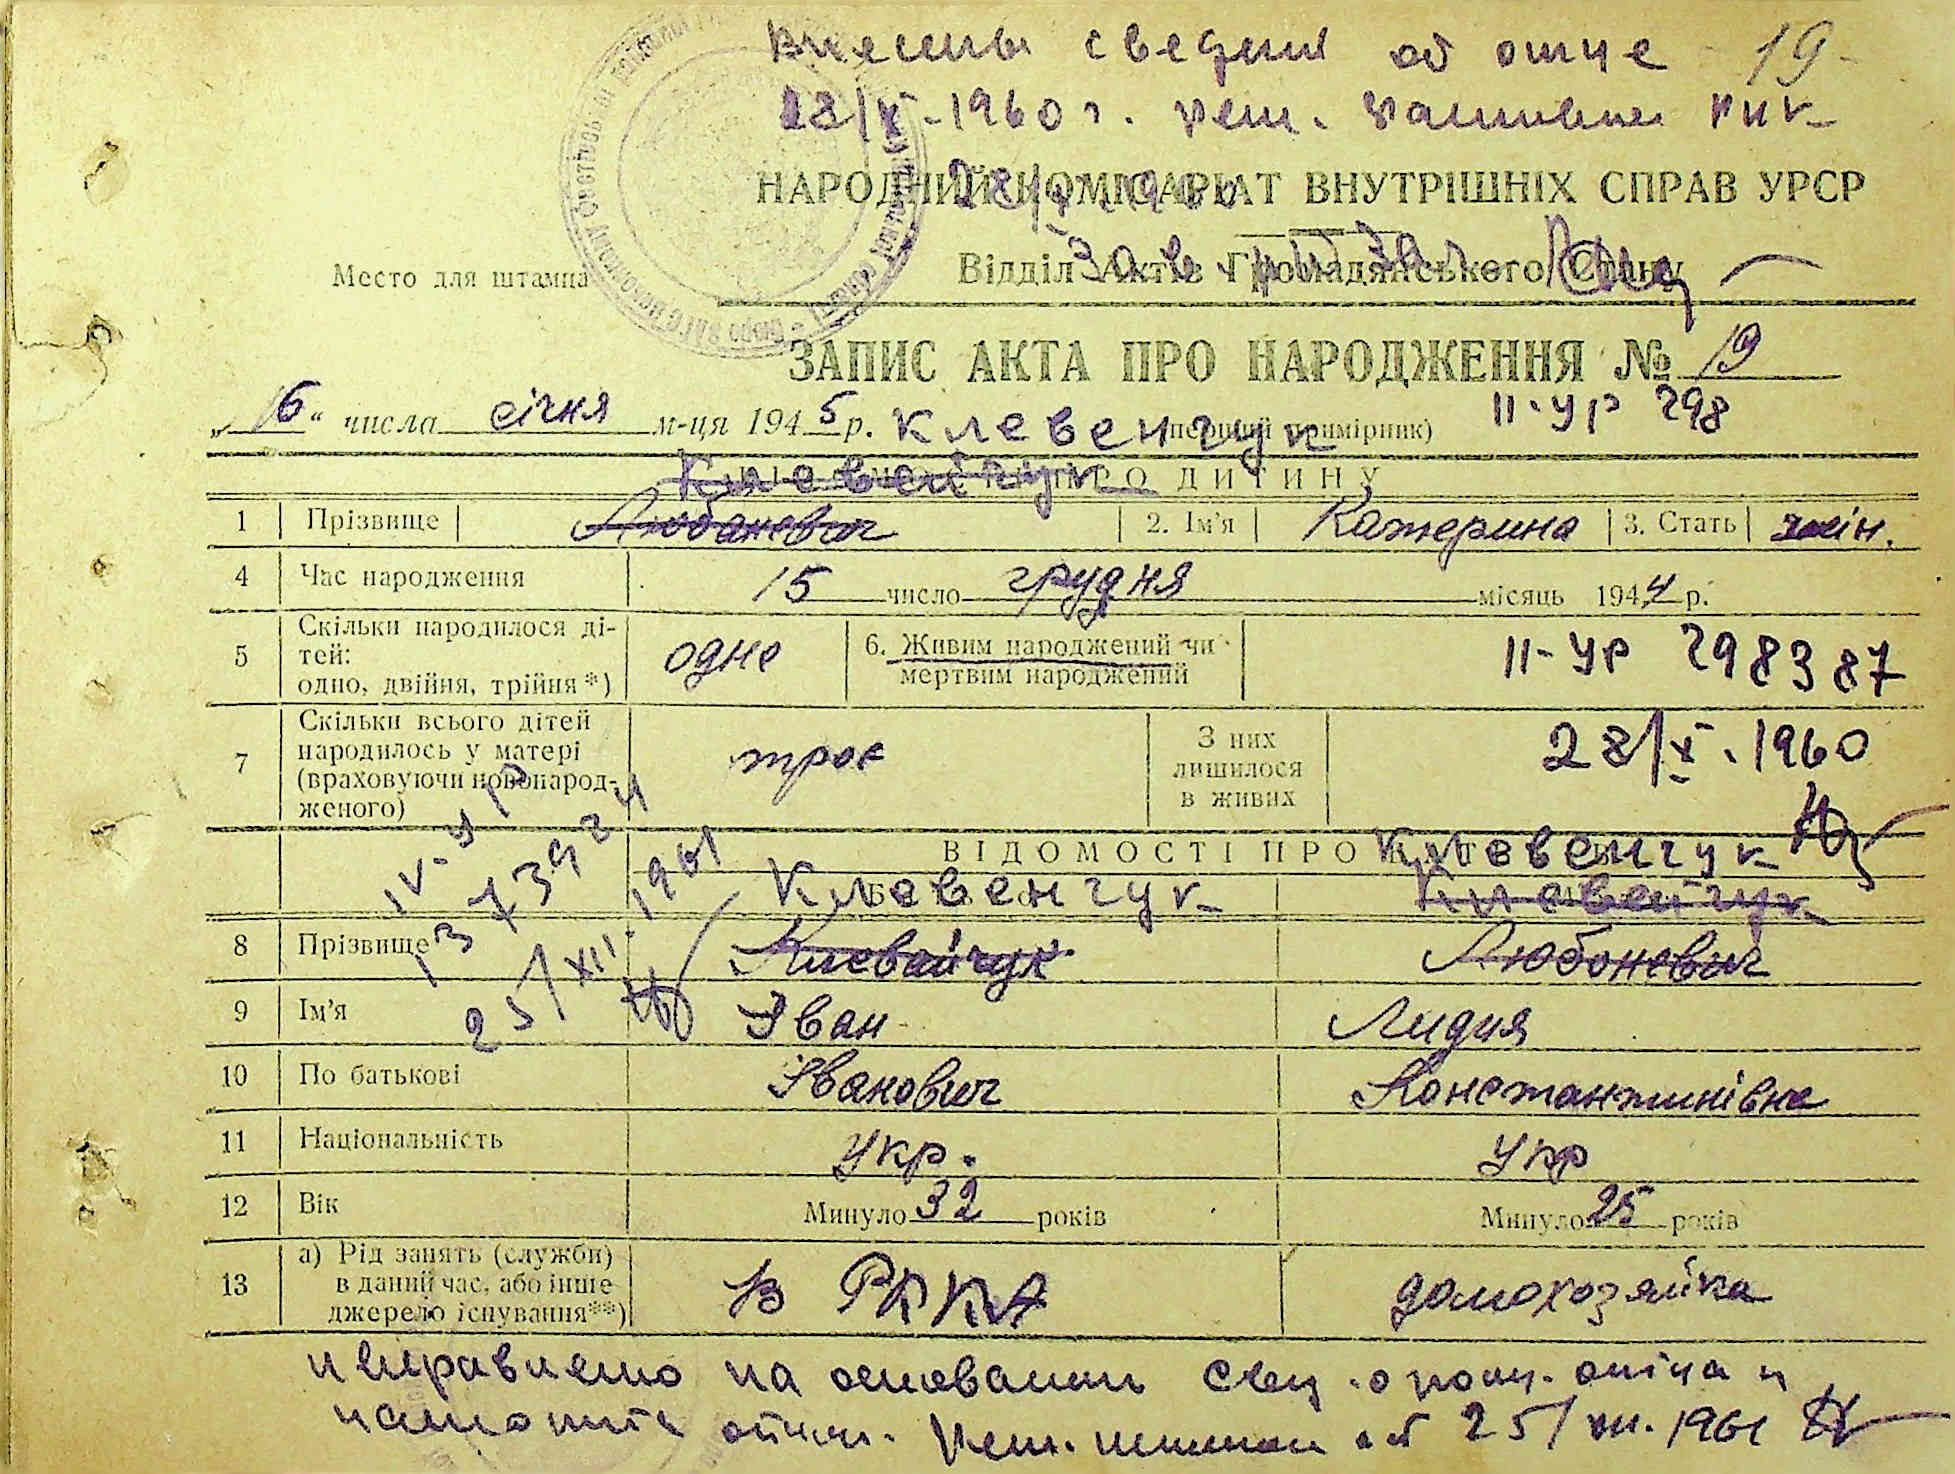 Внесены сведения об отце 19
28/X-1960 г. реш.
НАРОДНИЙ КОМІСАРІАТ ВНУТРІШНІХ СПРАВ УРСР
28/X-1960
Место для штампа
Відділ Актів Громадянського Стану
ЗАПИС АКТА ПРО НАРОДЖЕННЯ № 19
„16“ числа січня м-ця 1945 р. (перший примірник)
Клевенчук II-УР 298
ВІДОМОСТІ ПРО ДИТИНУ
Клевейчук
1 Прізвище Любаневич 2. Ім'я Катерина 3. Стать жін.
4 Час народження 15 число грудня місяць 1944 р.
5 Скільки народилося ді-
тей:
одно, двійня, трійня *) одне 6. Живим народжений чи
мертвим народжений II-УР 298387
7 Скільки всього дітей
народилось у матері
(враховуючи новонарод-
женого) троє З них
лишилося
в живих 28/X.1960
IV-УР
1373924
25/XII-1961
ВІДОМОСТІ ПРО БАТЬКІВ
Клевенчук Клевенчук
Клевейчук
8 Прізвище Клевайчук Любоневич
9 Ім'я Іван Лидия
10 По батькові Іванович Константинівна
11 Національність Укр. Укр
12 Вік Минуло 32 років Минуло 25 років
13 а) Рід занять (служби)
в даний час, або інше
джерело існування**) В РККА домохозяйка
исправлено на основании
25/XII.1961